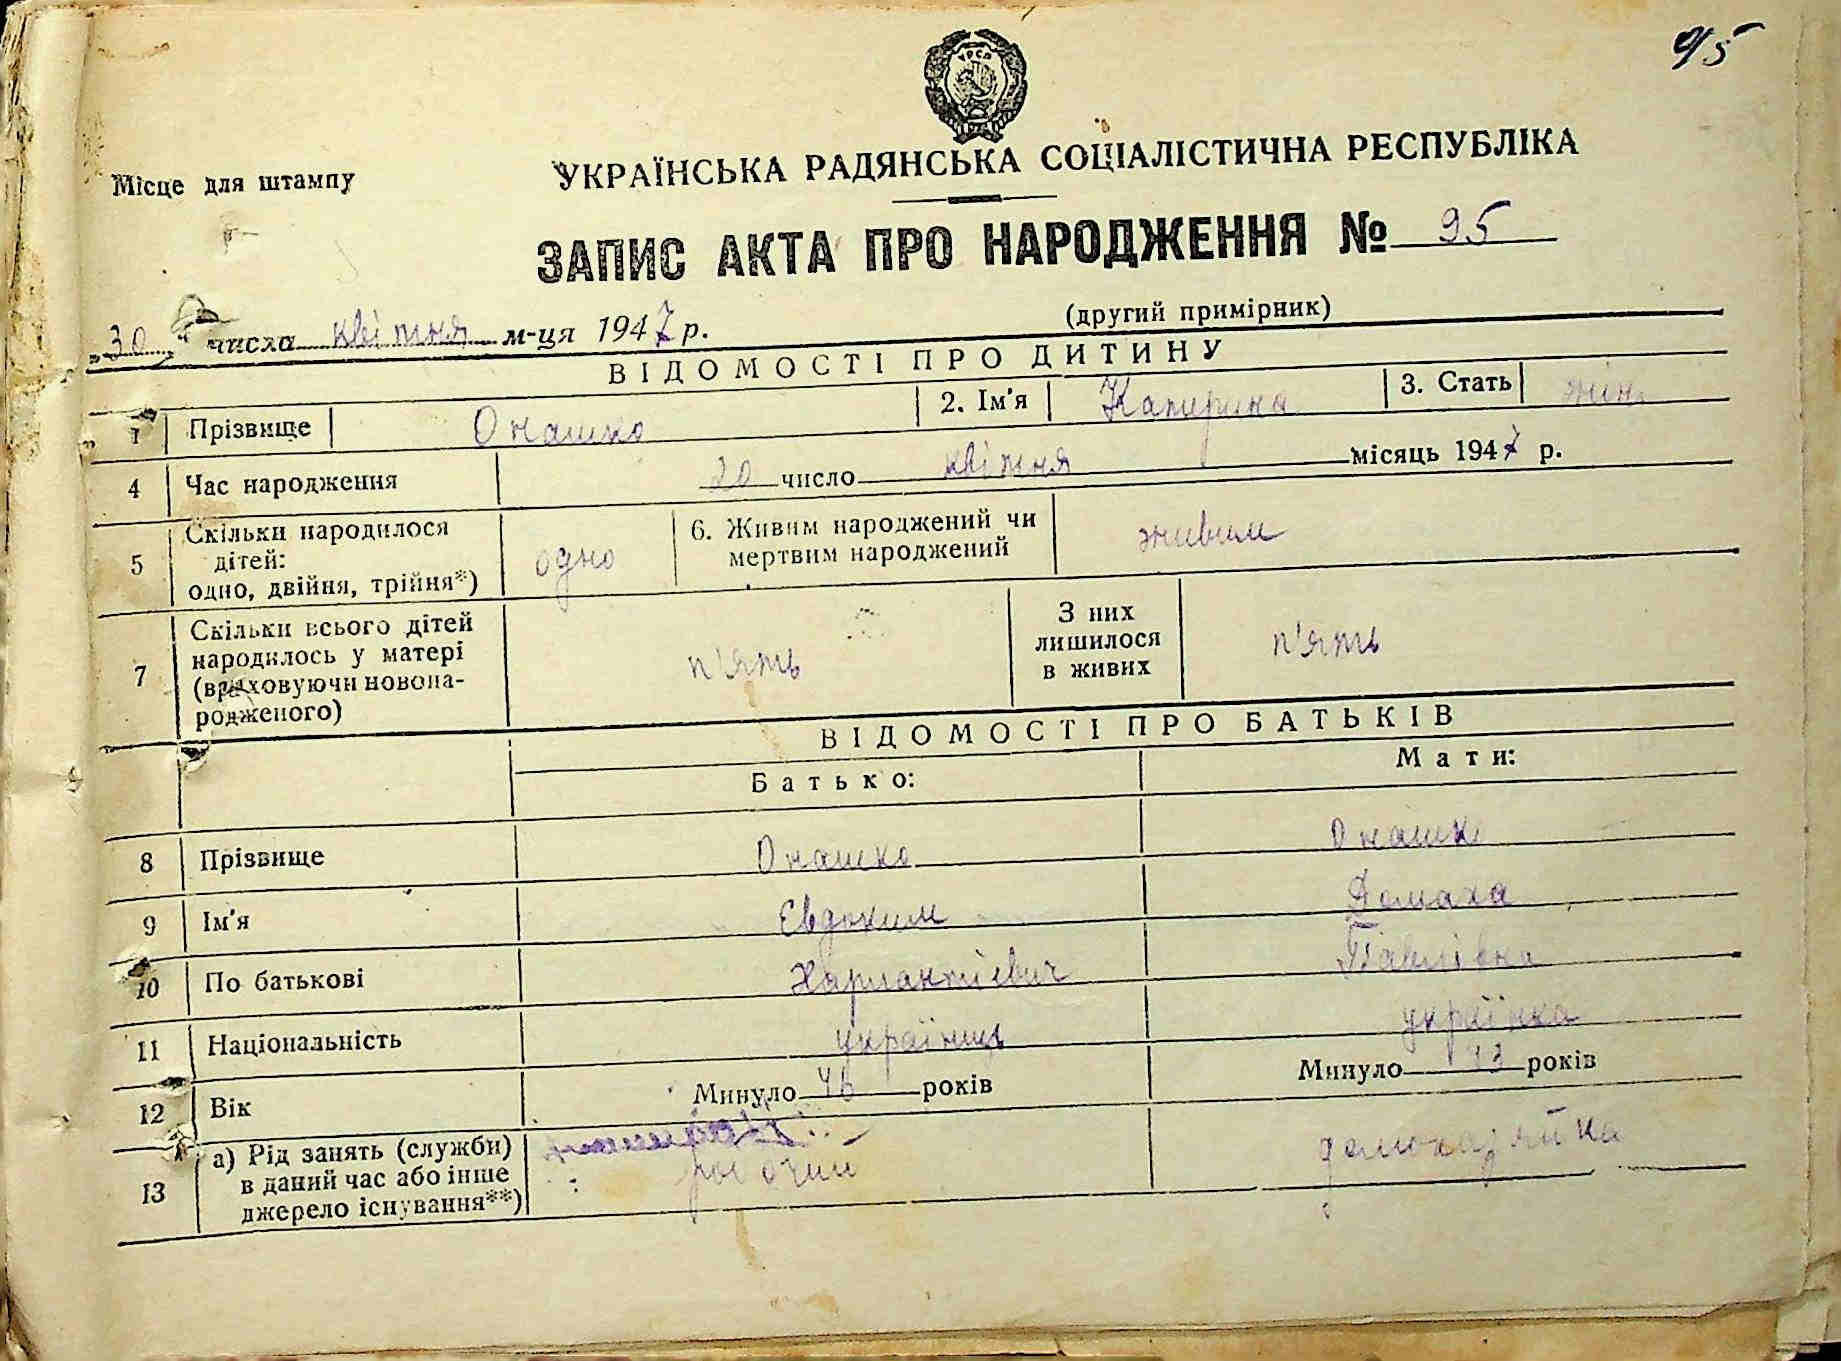 95
УРСР
Місце для штампу
УКРАЇНСЬКА РАДЯНСЬКА СОЦІАЛІСТИЧНА РЕСПУБЛІКА
ЗАПИС АКТА ПРО НАРОДЖЕННЯ № 95
(другий примірник)
„30" числа квітня м-ця 1947 р.
ВІДОМОСТІ ПРО ДИТИНУ
1 Прізвище Онашко 2. Ім'я Катерина 3. Стать жін.
4 Час народження 20 число квітня місяць 1947 р.
5 Скільки народилося дітей: одно, двійня, трійня*) одно 6. Живим народжений чи мертвим народжений живим
7 Скільки всього дітей народилось у матері (враховуючи новонародженого) п'ять З них лишилося в живих п'ять
ВІДОМОСТІ ПРО БАТЬКІВ
Батько: Мати:
8 Прізвище Онашко Онашк
9 Ім'я Євдоким Домаха
10 По батькові Харлантієвич Павлівна
11 Національність українць українка
12 Вік Минуло 46 років Минуло 43 років
13 а) Рід занять (служби) в даний час або інше джерело існування**) робочий домохазяйка